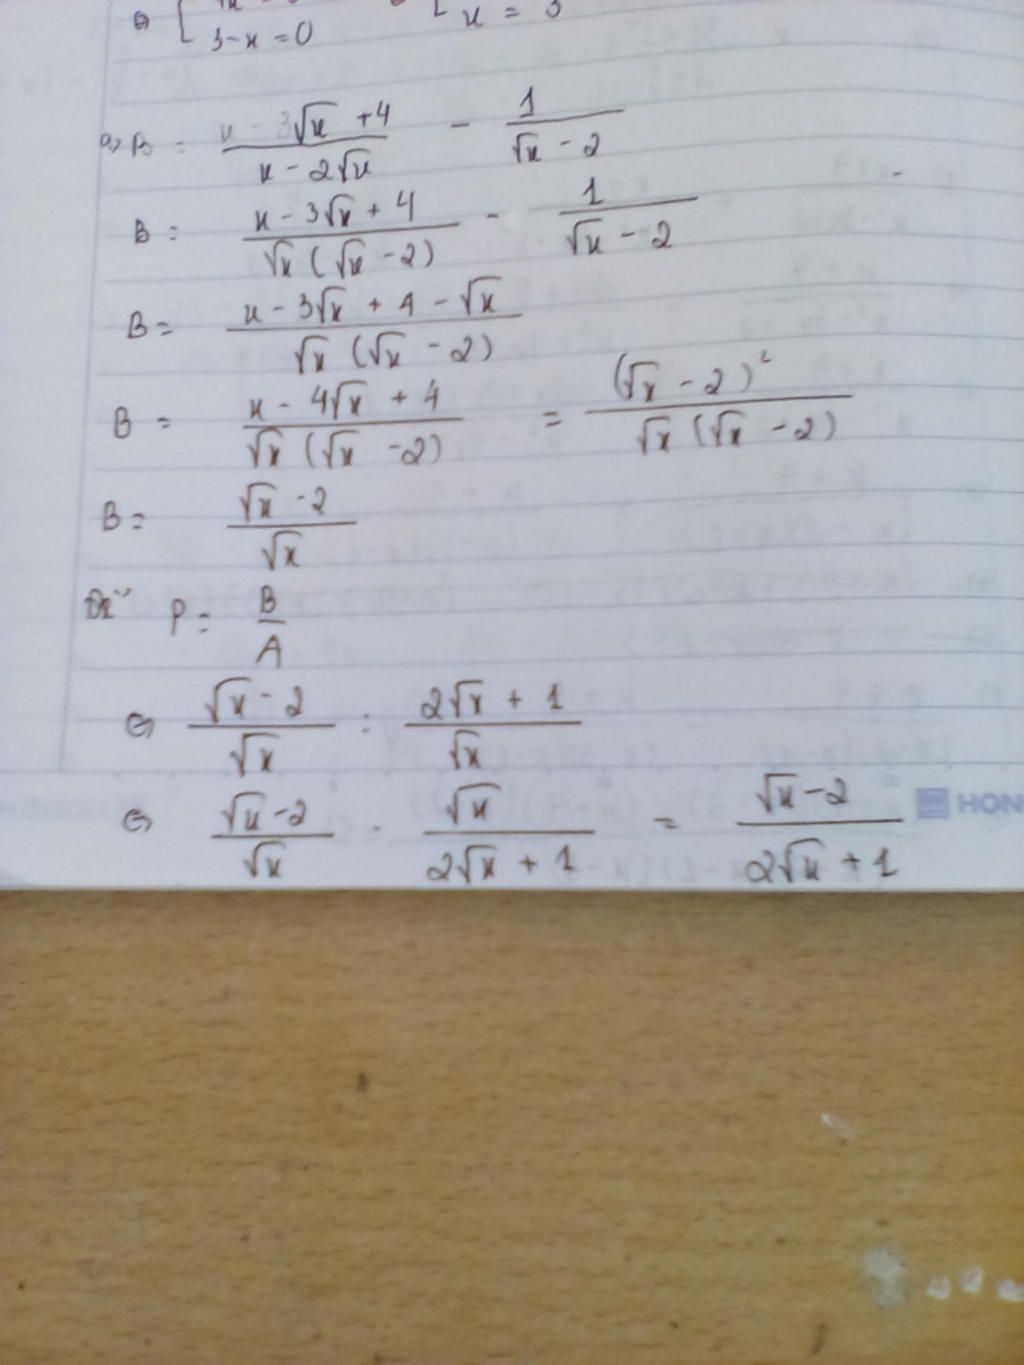 3-x=0 x = 3
B = x - 3√x + 4 / x - 2√x - 1 / √x - 2
B = x - 3√x + 4 / √x (√x - 2) - 1 / √x - 2
B = x - 3√x + 4 - √x / √x (√x - 2)
B = x - 4√x + 4 / √x (√x - 2) = (√x - 2)² / √x (√x - 2)
B = √x - 2 / √x
P = B / A
⇔ √x - 2 / √x : 2√x + 1 / √x
⇔ √x - 2 / √x . √x / 2√x + 1 = √x - 2 / 2√x + 1
HON